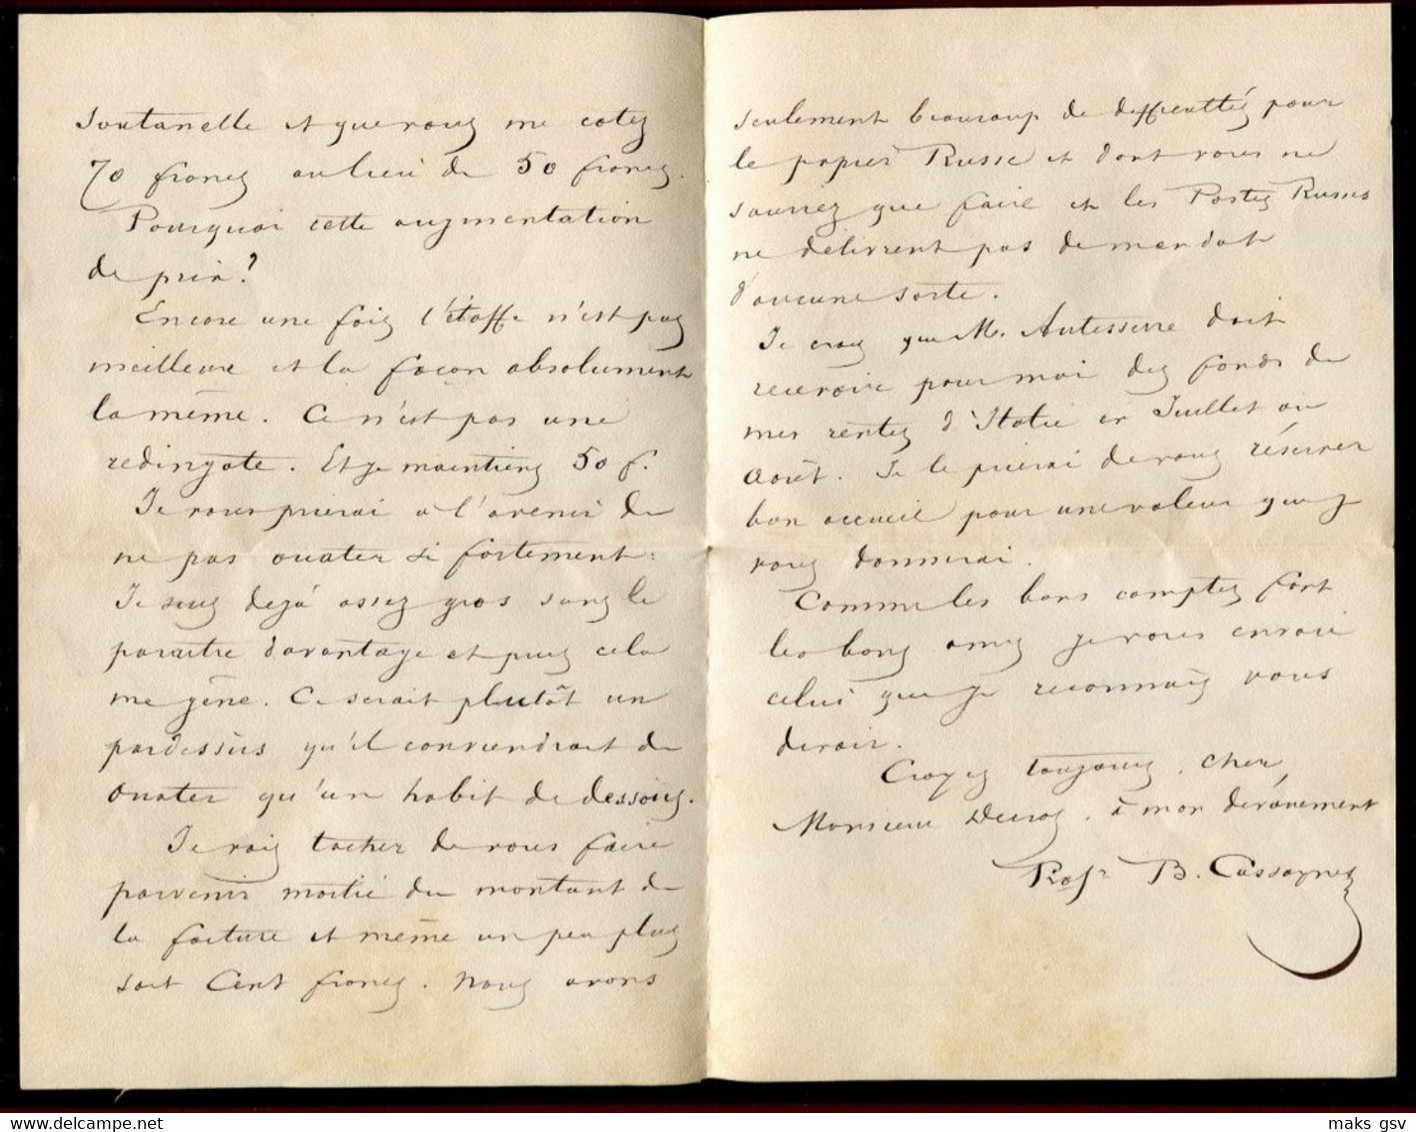 soutanelle et que vous me cotez
70 francs au lieu de 50 francs.
Pourquoi cette augmentation
de prix?
Encore une fois l'étoffe n'est pas
meilleure et la façon absolument
la même. Ce n'est pas une
redingote. Et je maintiens 50 f.
Je vous prierai a l'avenir de
ne pas ouater si fortement:
Je suis dejà assez gros sans le
paraitre davantage et puis cela
me gène. Ce serait plutôt un
pardessus qu'il conviendrait de
ouater qu'un habit de dessous.
Je vais tacher de vous faire
parvenir moitié du montant de
la facture et même un peu plus
soit Cent francs. Nous avons
seulement beaucoup de difficultés pour
le papier Russe et dont vous ne
sauriez que faire et les Postes Russes
ne délivrent pas de mandat
d'aucune sorte.
Je crois que M. Autesserre doit
recevoir pour moi des fonds de
mes rentes d'Italie en Juillet ou
Août. Je le prierai de vous réserver
bon accueil pour une valeur que je
vous donnerai.
Comme les bons comptes font
les bons amis je vous envoie
celui que je reconnais vous
devoir.
Croyez toujours, cher
Monsieur, à mon dévouement
Profr B. Cassagnes
maks gsv